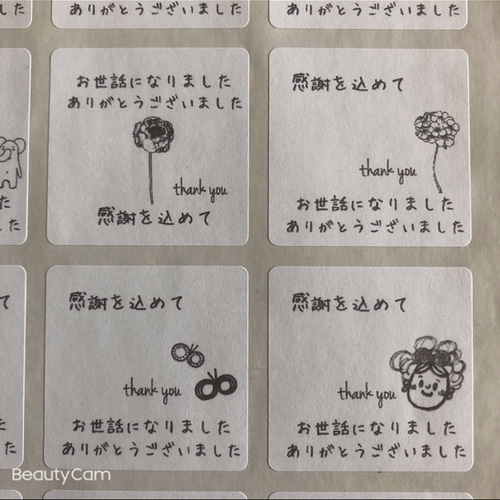 した
ありがとうございました
ありがとうございました
お世話になりました
ありがとうございました
thank you
感謝を込めて
感謝を込めて
thank you
お世話になりました
ありがとうございました
た
した
て
感謝を込めて
thank you
お世話になりました
ありがとうございました
感謝を込めて
thank you
お世話になりました
ありがとうございました
た
した
BeautyCam